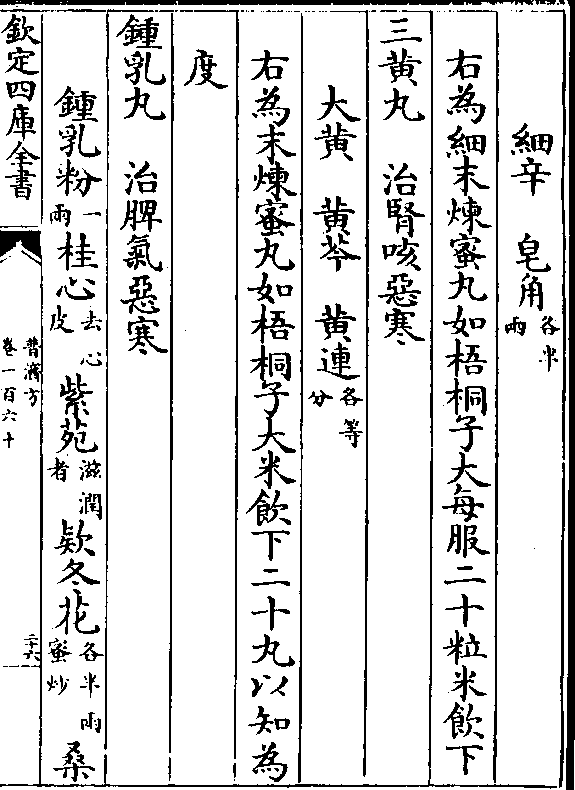 細辛　皂角各半兩
右為細末煉蜜丸如梧桐子大每服二十粒米飲下
三黄丸　治腎咳惡寒
大黄　黄芩　黄連各等分
右為末煉蜜丸如梧桐子大米飲下二十丸以知為
度
鍾乳丸　治脾氣惡寒
鍾乳粉一兩桂心去心皮紫苑滋潤者欵冬花各半兩蜜炒桑
欽定四庫全書
普濟方
卷一百六十
二十六